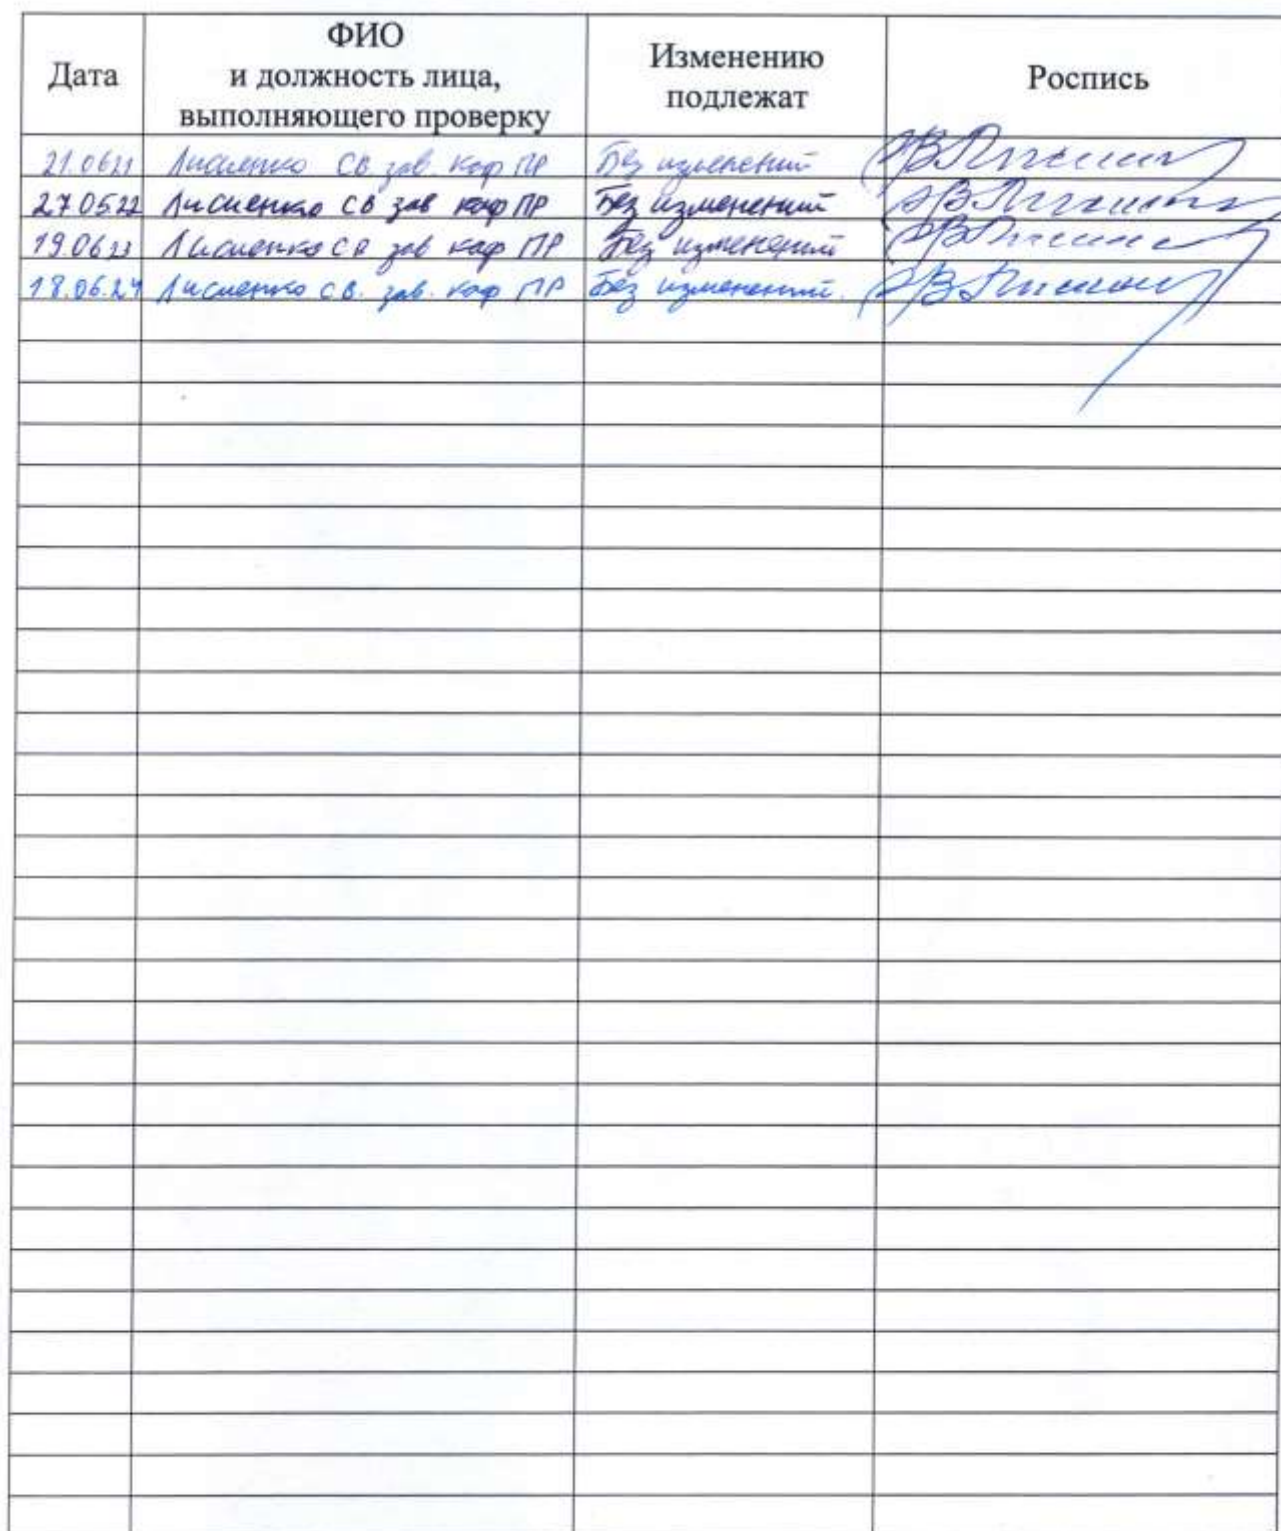 Дата
ФИО
и должность лица,
выполняющего проверку
Изменению
подлежат
Роспись
21.0621 Лисиенко СВ зав. каф ПР Без изменений
27.0522 Лисиенко СВ зав каф ПР Без изменений
19.0623 Лисиенко СВ зав каф ПР Без изменений
18.06.24 Лисиенко С.В. зав. каф ПР Без изменений.